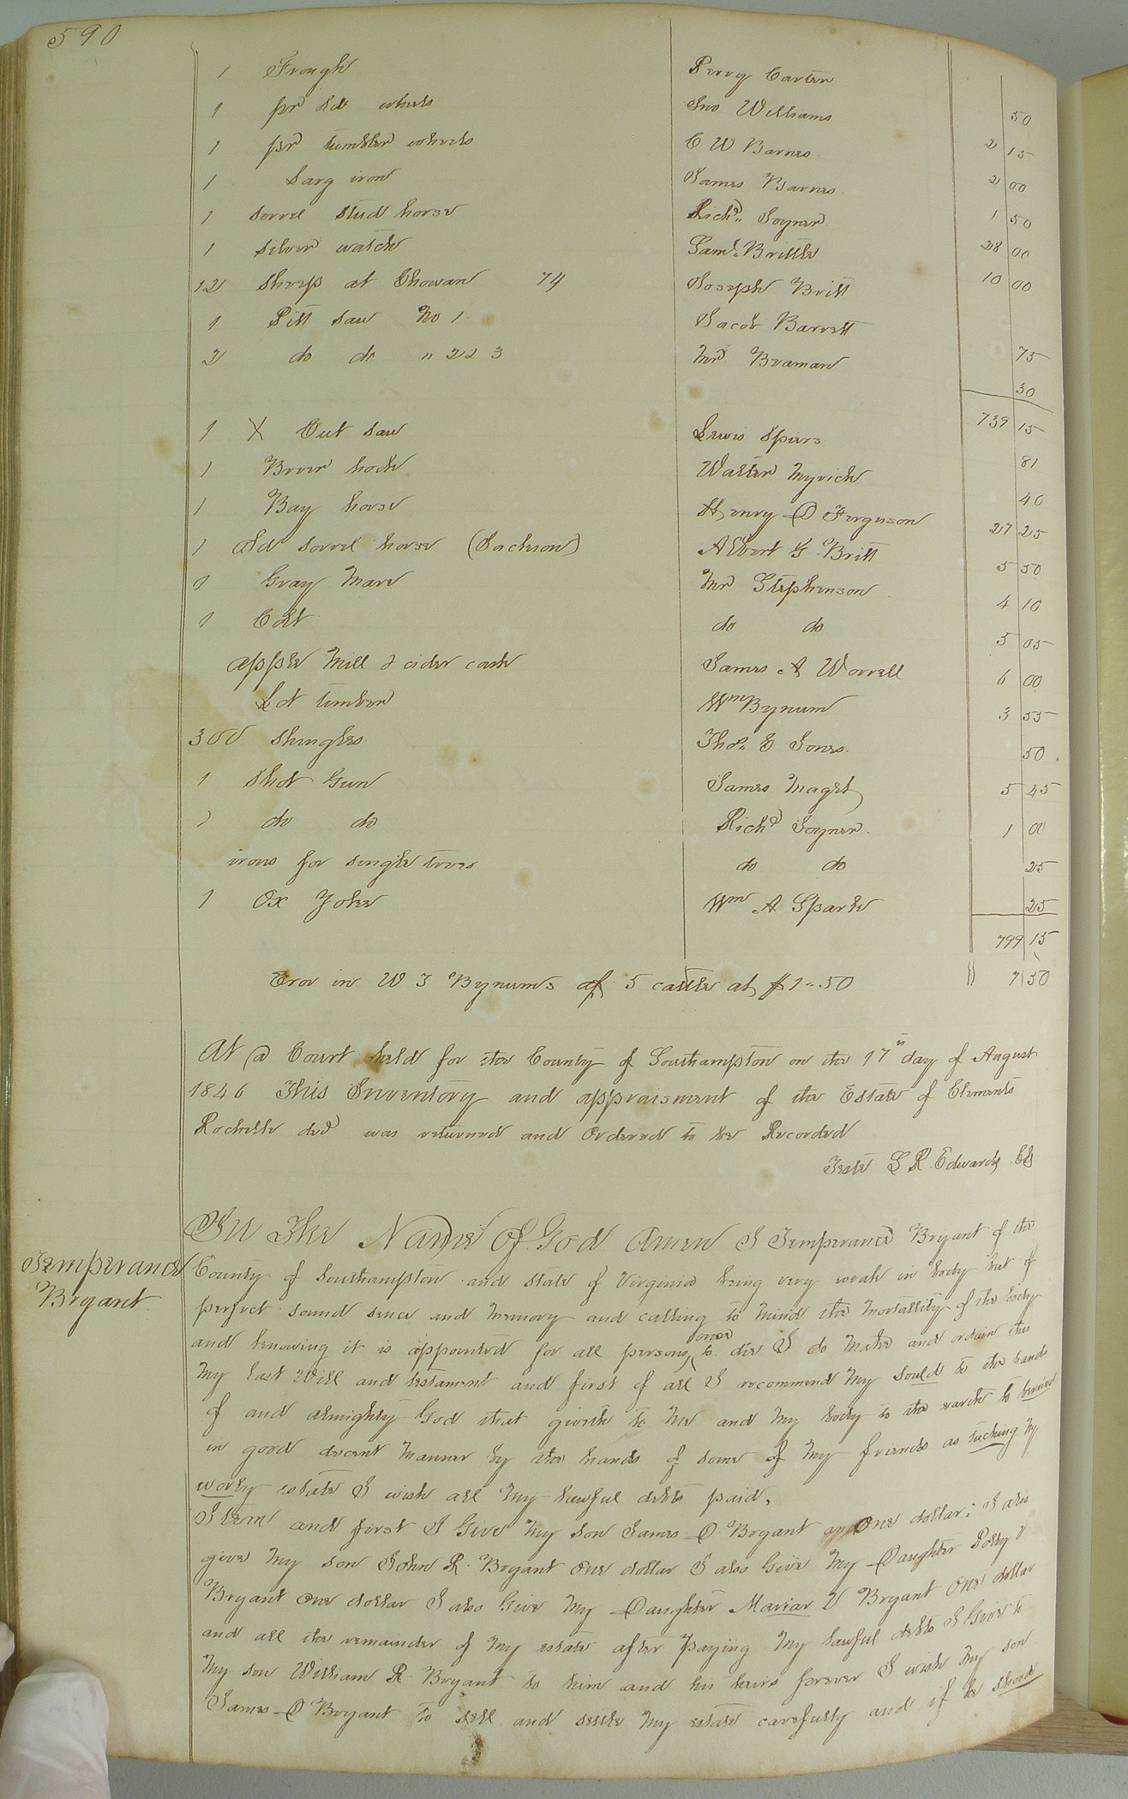 590
1 Frough Perry Carter 50
1 pr old wheels Jno Williams 2 15
1 pr tumbler wheels C W Barnes 2 00
1 Larg iron James Barnes 1 50
1 sorrel stud horse Richd Joyner 28 00
1 silver watch Saml Brittle 10 00
12 Sheep at Chowan 74 Joseph Britt
1 Pitt saw No 1 Jacob Barrett 75
2 do do " 2 & 3 Mr Beaman 30
739 15
1 X Cut saw Lewis Spiers 81
1 Brier hook Walter Myrick 40
1 Bay horse Henry D Ferguson 27 25
1 old sorrel horse (Jackson) Albert G Britt 5 50
1 Gray Mare Mr Stephenson 4 10
1 Colt do do 5 05
apple Mill & cider cask James A Worrell 6 00
Lot timber Wm Bynum 3 55
300 shingles Thos E Jones 50
1 Shot Gun James Maget 5 45
1 do do Richd Joyner 1 00
irons for single trees do do 25
1 Ox Yoke Wm A Spark 25
799 15
Eror in W J Bynums of 5 cattle at $1-50 7 50
At a Court held for the County of Southampton on the 17th day of August
1846 This Inventory and appraisment of the Estate of Clements
Rochelle decd was returned and Ordered to be Recorded
Teste L R Edwards Clk
Temperance
Bryant
In The Name Of God Amen I Temperance Bryant of the
County of Southampton and State of Virginia being very weak in body but of
perfect sound sence and memory and calling to mind the mortallity of the body
and knowing it is appointed for all persons once to die I do Make and ordain this
My last Will and testament and first of all I recommend My Sould to the hands
of and almighty God that giveth to Me and My body to the earth to buried
in good decent Manner by the hands of some of My friends as tuching My
worly estate I wish all My lawful debts paid,
Item and first I Give My son James D. Bryant one dollar; I also
give My son John R. Bryant one dollar I also Give My Daughter Polly
Bryant one dollar I also Give My Daughter Mariar V Bryant One dollar
and all the remainder of My estate after paying My lawful debts I Give to
My son William R Bryant to him and his heirs forever I wish My son
James D Bryant to sell and settle My estate carefully and if he shood